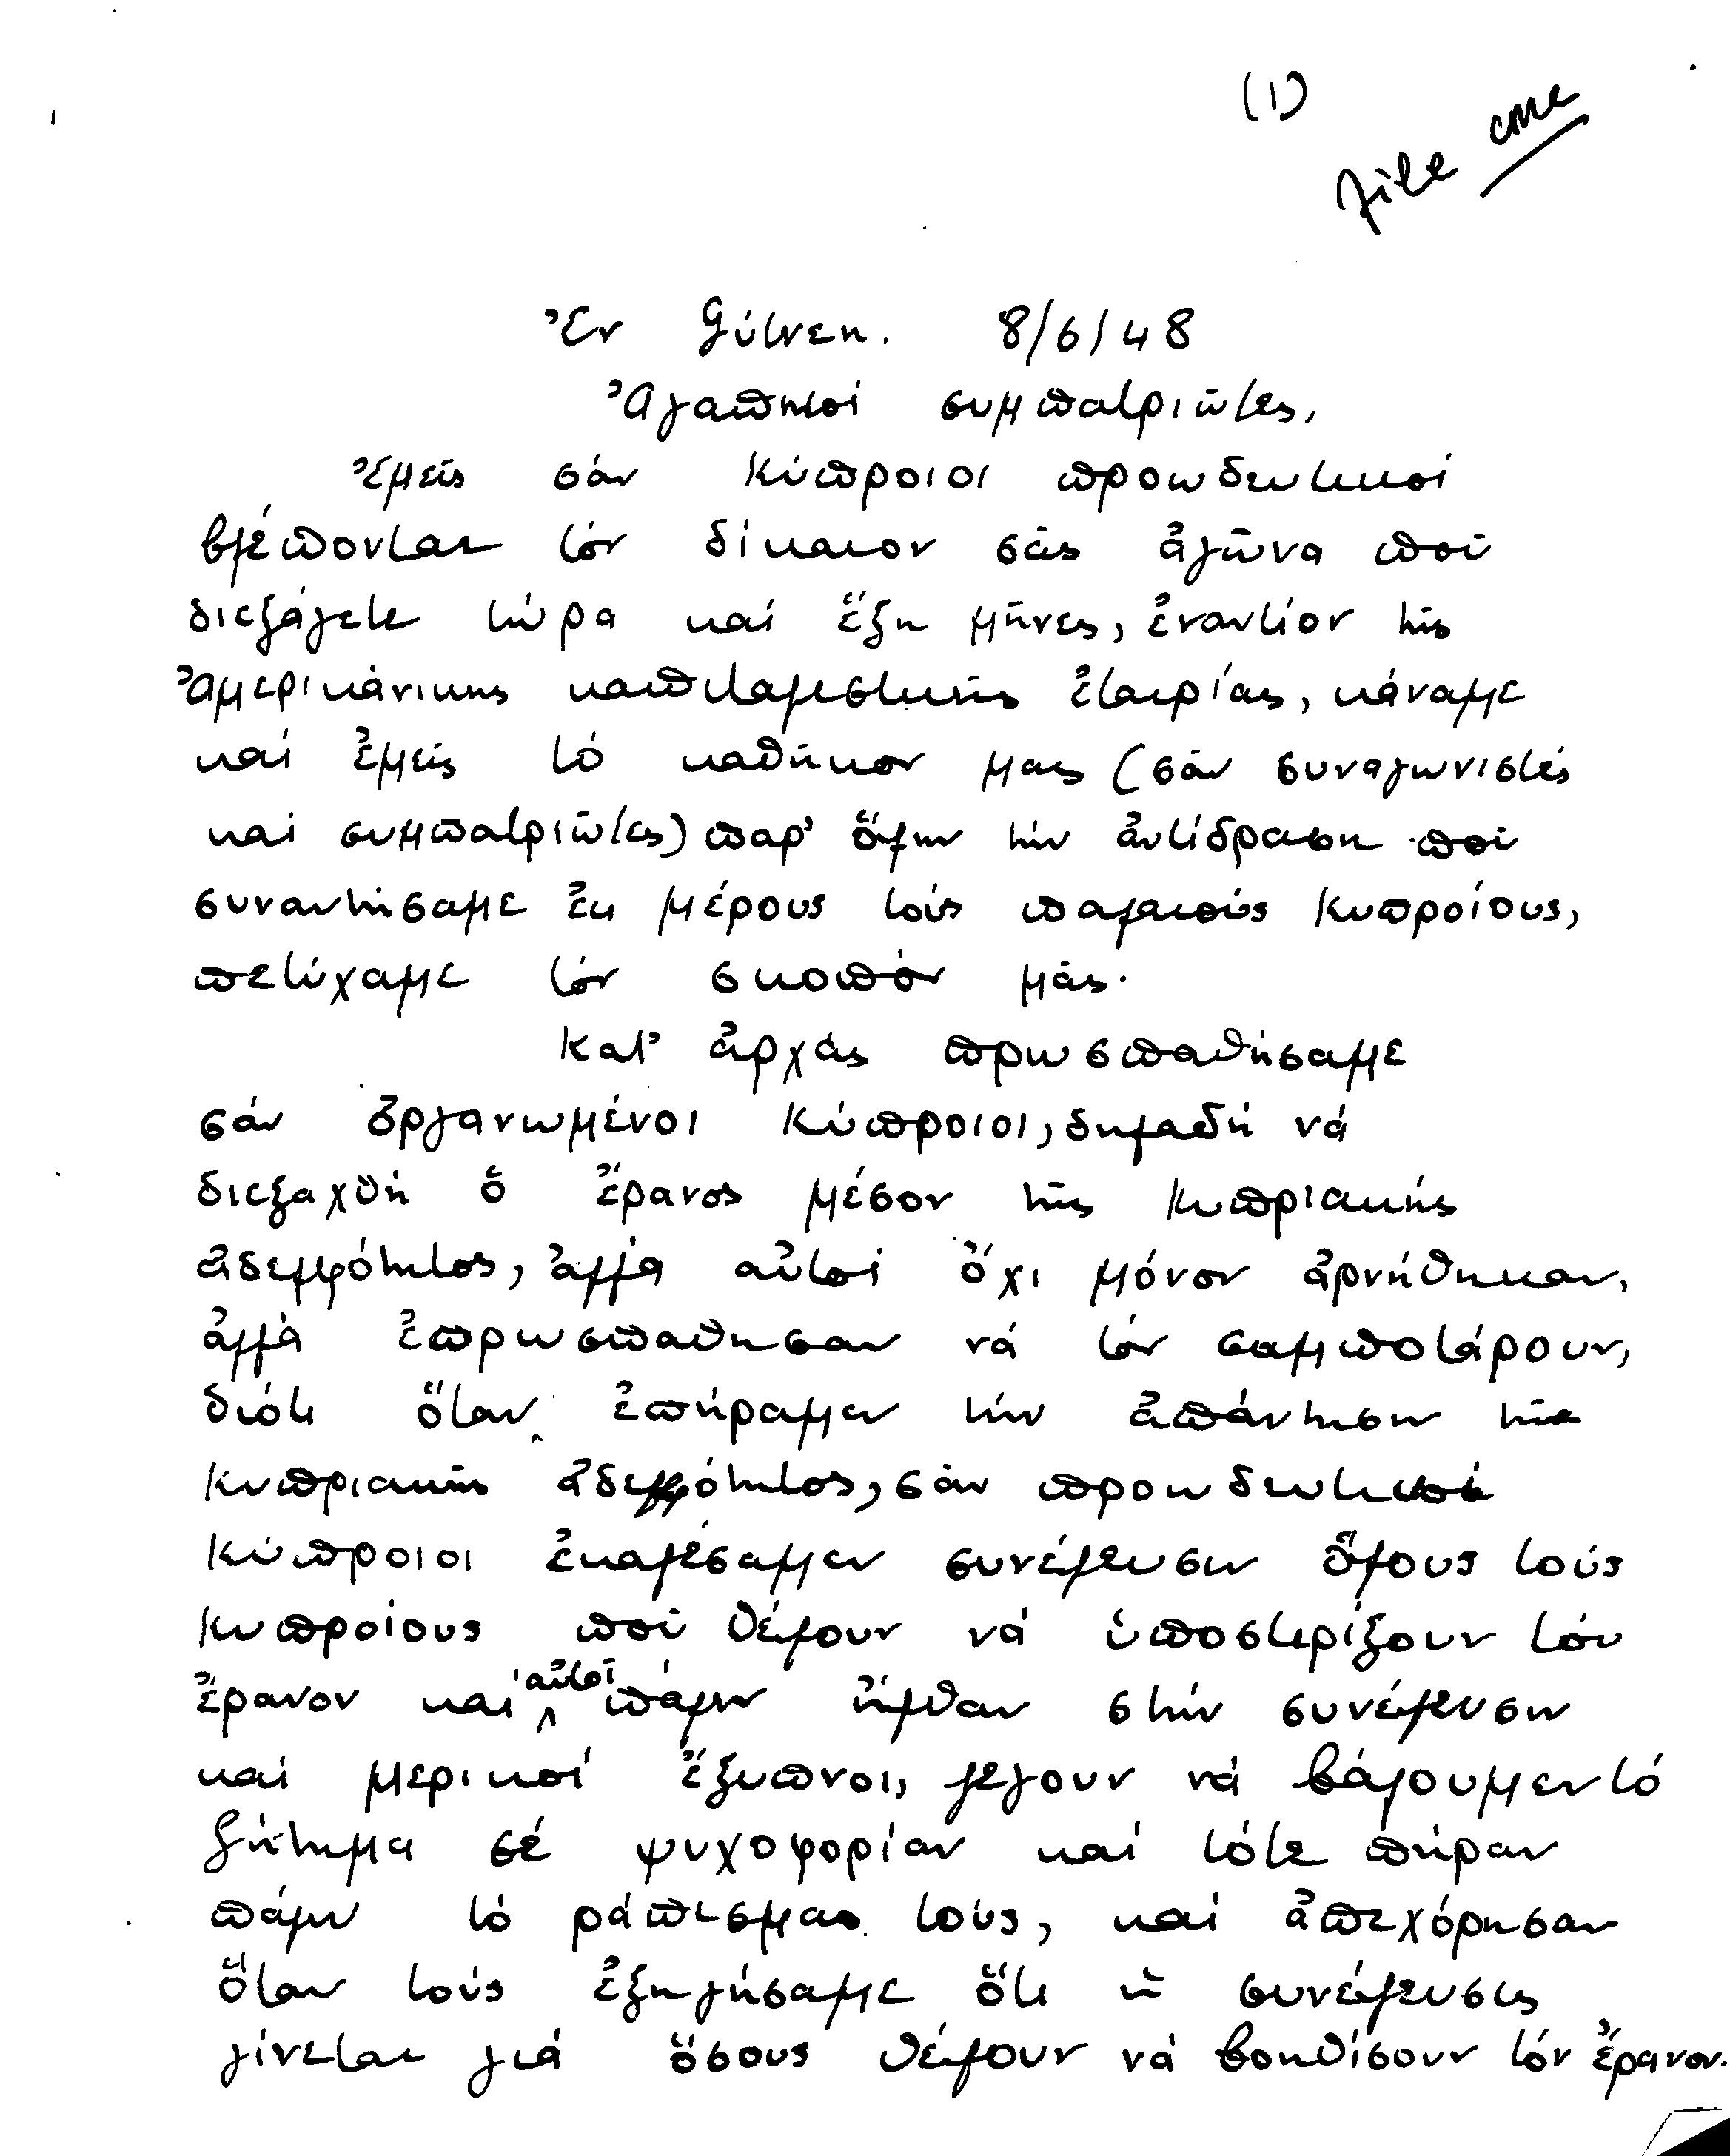 (1)
File CMC
Ἐν Gúlνεη. 8/6/48
Ἀγαπητοί συμπατριῶτες,
Ἐμεῖς σάν Κύπροιοι προοδευτικοί
βλέποντας τόν δίκαιον σᾶς ἀγῶνα ποῦ
διεξάγετε τώρα καί ἕξη μῆνες, ἐναντίον τῆς
Ἀμερικάνικης καπιταλεστικῆς ἑταιρίας, κάναμε
καί ἐμεῖς τό καθῆκον μας (σάν συναγωνιστές
καί συμπατριῶτες) παρ' ὅλην τήν ἀντίδραση ποῦ
συναντήσαμε ἐκ μέρους τούς παλαιούς Κυπροίους,
πετύχαμε τόν σκοπόν μᾶς.
Κατ' ἀρχάς πρωσπαθήσαμε
σάν ὀργανωμένοι Κύπροιοι, δηλαδή νά
διεξαχθῆ ὁ ἔρανος μέσον τῆς Κυπριακῆς
ἀδελφότητος, ἀλλά αὐτοί ὄχι μόνον ἀρνήθηκαν,
ἀλλά ἐπρωσπαθησαν νά τόν σαμποτάρουν,
διότι ὅταν ἐπήραμεν τήν ἀπάντησιν τῆς
Κυπριακῆς ἀδελφότητος, σάν προοδευτικοί
Κύπροιοι ἐκαλέσαμεν συνέλευσιν ὅλους τούς
Κυπροίους ποῦ θέλουν νά ὑποστερίξουν τόν
ἔρανον καί αὐτοί πάλιν ἦλθαν στήν συνέλευσιν
καί μερικοί ἔξυπνοι, λεγουν νά βάλουμεν τό
ζήτημα σέ ψυχοφορίαν καί τότε πήραν
πάλιν τό ράπισμαν τούς, καί ἀπεχόρησαν
ὅταν τούς ἐξηγήσαμε ὅτι ἡ συνέλευσις
γίνεται γιά ὅσους θέλουν νά βοηθίσουν τόν ἔρανον.